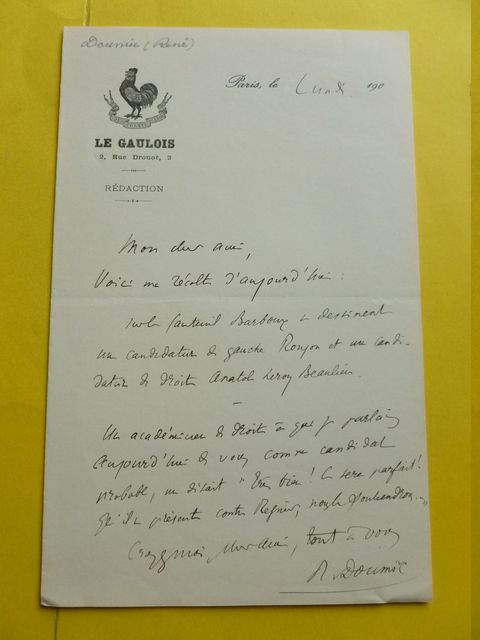 Doumic (René)
Paris, le Lundi 190
LE GAULOIS
2, Rue Drouot, 2
RÉDACTION
Mon cher ami,
Voici ma récolte d'aujourd'hui :
Sur le fauteuil Barboux se dessinent
une candidature de gauche Roujon et une candi-
dature de droite Anatole Leroy Beaulieu.
Un académicien de droite à qui je parlais
aujourd'hui de vous comme candidat
probable, me disait "Très bien ! Ce sera parfait !
Qu'il se présente contre Régnier, nous le soutiendrons..."
Croyez moi, cher ami, tout à vous
R. Doumic